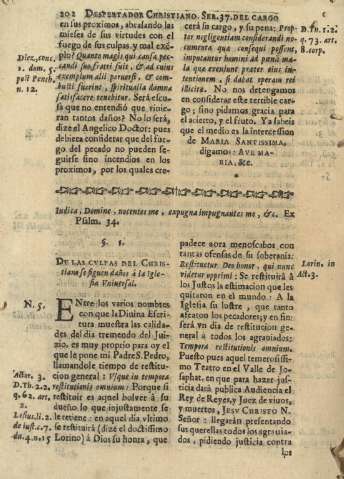 202 DESPERTADOR CHRISTIANO. SER. 37. DEL CARGO
en sus proximos, abrasando las
mieses de sus virtudes con el
fuego de sus culpas, y mal exẽ-
plo? Quanto magis qui causa pec-
candi suis fratri fuit, & ad cuius
exemplum alii perierunt, & com-
busti fuerint, spiritualia damna
satisfacere tenebitur. Será escu-
sa que no entendiò que vinie-
ran tantos daños? No lo será,
dize el Angelico Doctor: pues
debiera considerar que del fue-
go del pecado no pueden se-
guirse sino incendios en los
proximos, por los quales cre-
cerá su cargo, y su pena: Prop-
ter negligentiam considerandi no-
cumenta quæ consequi possent,
imputantur homini ad pœnam ma-
la quæ eveniunt præter eius in-
tentionem, si dabat operam rei
illicitæ. No nos detengamos
en considerar este terrible car-
go; sino pidamos gracia para
el acierto, y el fruto. Ya sabeis
que el medio es la intercession
de MARIA SANTISSIMA,
digamo: AVE MA-
RIA, &c.
Diez, conc.
2. dom. 5.
post Pench.
n. 12.
D. Th. 1. 2.
q. 73. art.
8. corp.
Iudica, Domine, nocentes me, expugna impugnantes me, &c. Ex
Psalm. 34.
§. 1.
DE LAS CULPAS DEL CHRIS-
tiano se siguen daños à la Igle-
sia Vniversal.
N. 5.
ENtre los varios nombres
con que la Divina Escri-
tura muestra las calida-
des del dia tremendo del Jui-
zio, es muy proprio para oy el
que le pone mi Padre S. Pedro,
llamandole tiempo de restitu-
cion general: Vsque in tempora
restitutionis omnium: Porque si
restituir es aquel bolver à su
dueño lo que injustamente se
le retiene: en aquel dia vltimo
se restituirà (dize el doctissimo
Lorino) à Dios su honra, que
Actor. 3.
D. Th. 2. 2.
q. 62. art.
2.
Lesius. li. 2.
de iust. c. 7.
dn. 4. n. 15
padece aora menoscabos con
tantas ofensas de su soberania:
Restituetur Deo honor, qui nunc
videtur opprimi: Se restituirà à
los Justos la estimacion que les
quitaron en el mundo: A la
Iglesia su lustre, que tanto
afeaton los pecadores; y en fin
serà vn dia de restitucion ge-
neral à todos los agraviados:
Tempora restitutionis omnium.
Puesto pues aquel temerosissi-
mo Teatro en el Valle de Jo-
saphat, en que para hazer jus-
ticia dará publica Audiencia el
Rey de Reyes, y Juez de vivos,
y muertos, JESV CHRISTO N.
Señor: llegaràn presentando
sus querellas todos los agravia-
dos, pidiendo justicia contra
Lorin. in
Act. 3.
los